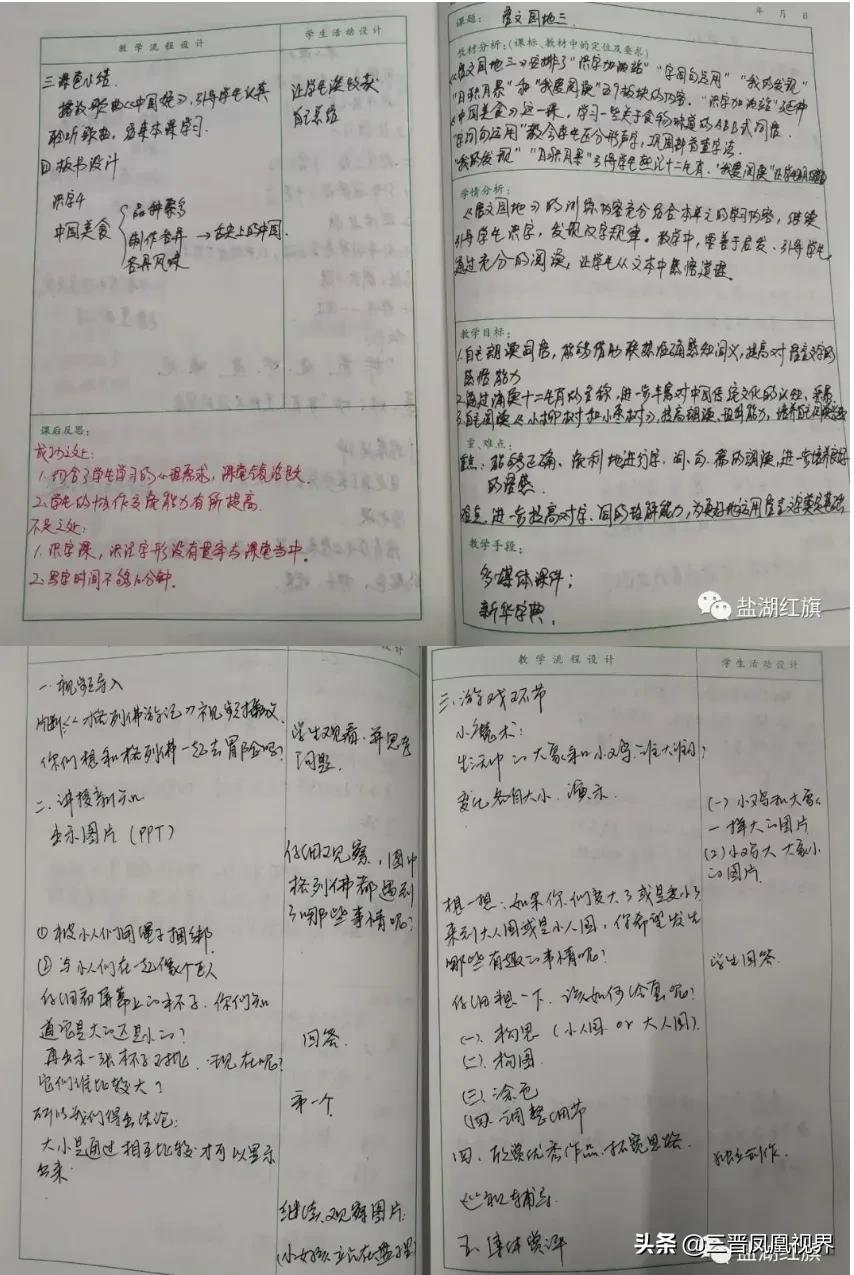 教学流程设计
学生活动设计
三、课堂小结
播放歌曲《中国娃》,引导学生认真
聆听歌曲,结束本课学习.
让学生谈收获
自主总结
四 板书设计
识字4
中国美食
品种繁多
制作各异 → 舌尖上的中国.
各具风味
课后反思:
成功之处:
1. 切合了学生学习的心理需求,课堂
2. 学生的协作交流能力有所提高.
不足之处:
1. 识字课,识记字形没有贯穿与课堂当中.
2. 写字时间不够10分钟.
年 月 日
课题: 语文园地三.
教材分析:(课标、教材中的定位及要求)
《语文园地三》安排了“识字加油站”“字词句运用”“我的发现”
“日积月累”和“我爱阅读”五个板块的内容. “识字加油站”延伸
《中国美食》这一课,学习一些关于食物味道的ABB式词语.
“字词句运用”教会学生区分形声字,巩固部首查字法.
“我的发现”“日积月累”引导学生熟记十二生肖.“我爱阅读”
学情分析:
《语文园地》的训练内容充分结合本单元的学习内容,继续
引导学生识字,发现汉字规律。教学中,要善于启发、引导学生,
通过充分的阅读,让学生从文本中感悟道理.
教学目标:
1. 自主朗读词语,能够借助联想准确感知词义,提高对语言文字的
感悟能力
2. 通过诵读十二生肖的名称,进一步丰富对中国传统文化的认知,
3. 自主阅读《小柳树和小枣树》,提高朗读、
重、难点:
重点: 能够正确、流利地进行字、词、句、篇的朗读,进一步培养良好
的语感.
难点: 进一步提高对字、词的理解能力,为更好地运用语言文字奠定基础
教学手段:
多媒体课件;
新华字典.
盐湖红旗
一. 视频导入
片断《格列佛游记》视频播放.
你们想和格列佛一起去冒险吗?
学生观看,并思考
问题.
二. 讲授新知
出示图片 (PPT)
仔细观察,图中
格列佛都遇到
了哪些事情呢?
① 被小人们用绳子捆绑.
② 与小人们在一起像个巨人
仔细看屏幕上的杯子,你们知
道它是大的还是小的?
回答.
再出示一张杯子对比,现在呢?
它们谁比较大?
第一个
所以我们得出结论:
大小是通过相互比较才可以显示
出来.
继续观察图片.
教学流程设计
学生活动设计
三. 游戏环节
小魔术:
生活中的大象和小鸡谁大谁小?
变化各自大小. 演示.
(一) 小鸡和大象
一样大的图片
(2) 小鸡大 大象小
的图片.
想一想: 如果你们变大了或是变小了
来到大人国或是小人国,你希望发生
哪些有趣的事情呢?
学生回答.
仔细想一下. 该如何绘画呢?
(一). 构思 (小人国 or 大人国).
(二). 构图
(三). 涂色
(四). 调整细节
四. 欣赏优秀作品、拓宽思路.
独立创作.
巡回辅导.
五. 集体赏评
盐湖红旗
头条 @三晋凤凰视界